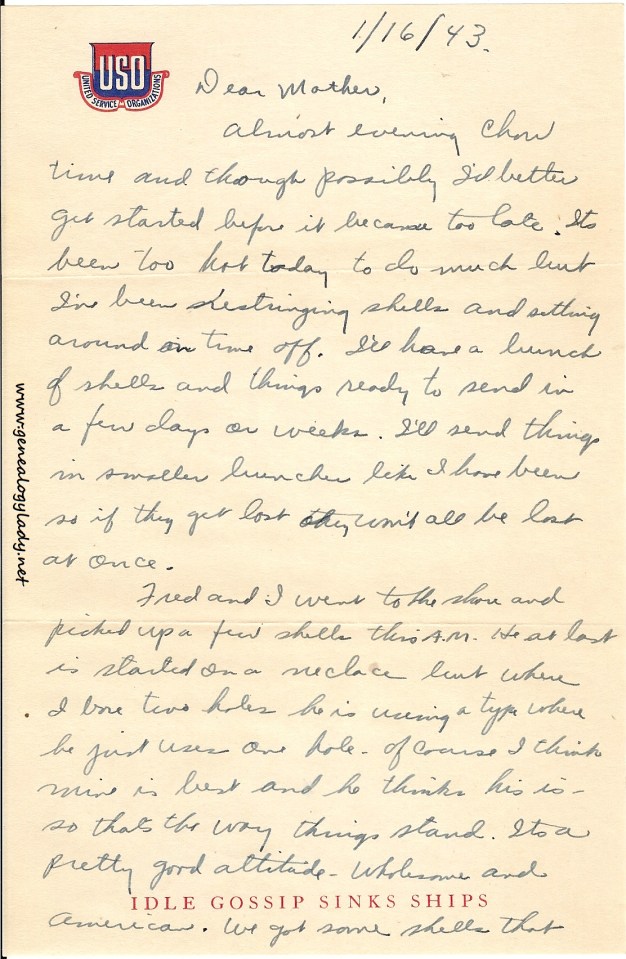 1/16/43.
USO
UNITED SERVICE ORGANIZATIONS
Dear Mother,
Almost evening Chow
time and though possibly I'd better
get started before it became too late. Its
been too hot today to do much but
I've been restringing shells and sitting
around on time off. I'll have a bunch
of shells and things ready to send in
a few days or weeks. I'll send things
in smaller bunches like I have been
so if they get lost they won't all be lost
at once.
Fred and I went to the shore and
picked up a few shells this A.M. He at last
is started on a neclace but where
I bore two holes he is using a type where
he just uses one hole - of course I think
mine is best and he thinks his is -
so thats the way things stand. Its a
pretty good attitude - wholesome and
IDLE GOSSIP SINKS SHIPS
American. We got some shells that
www.genealogylady.net